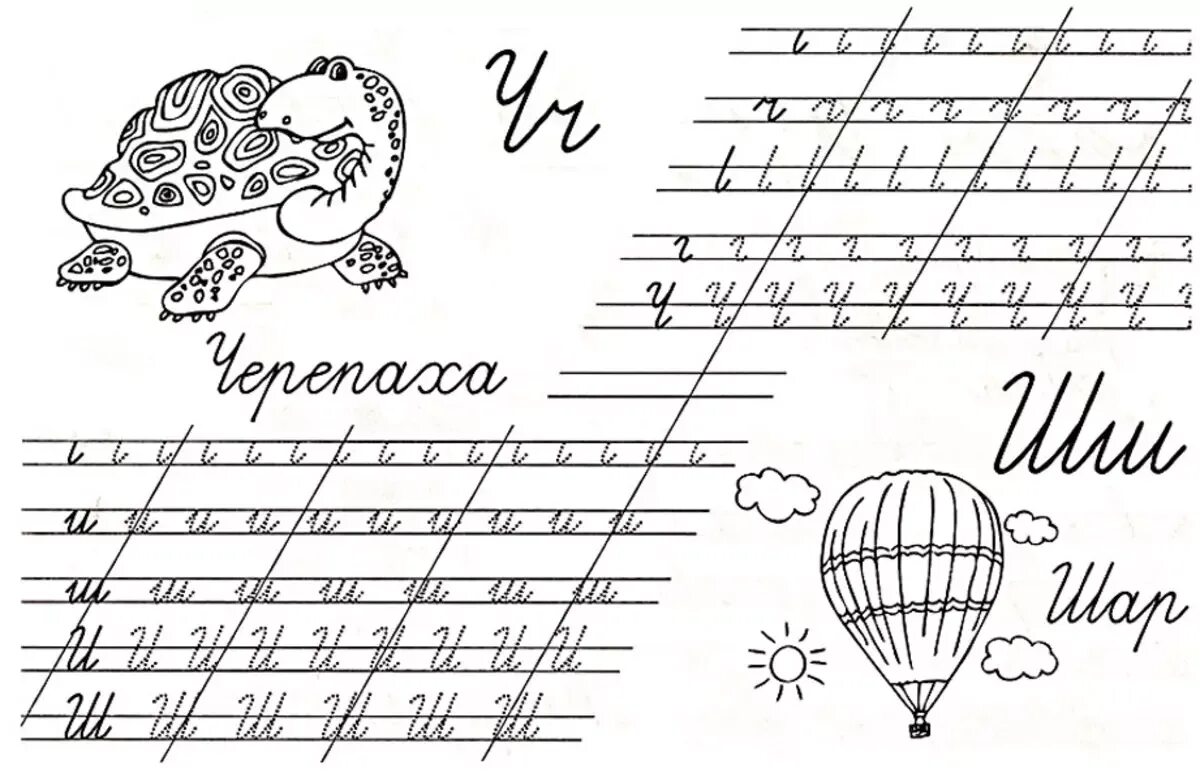 Чч
ч ч ч ч ч ч ч ч
Ч Ч Ч Ч Ч Ч Ч Ч Ч
Черепаха
и и и и и и и и и и
ш ш ш ш ш ш ш
И И И И И И И И И
Ш Ш Ш Ш Ш Ш
Шш
Шар